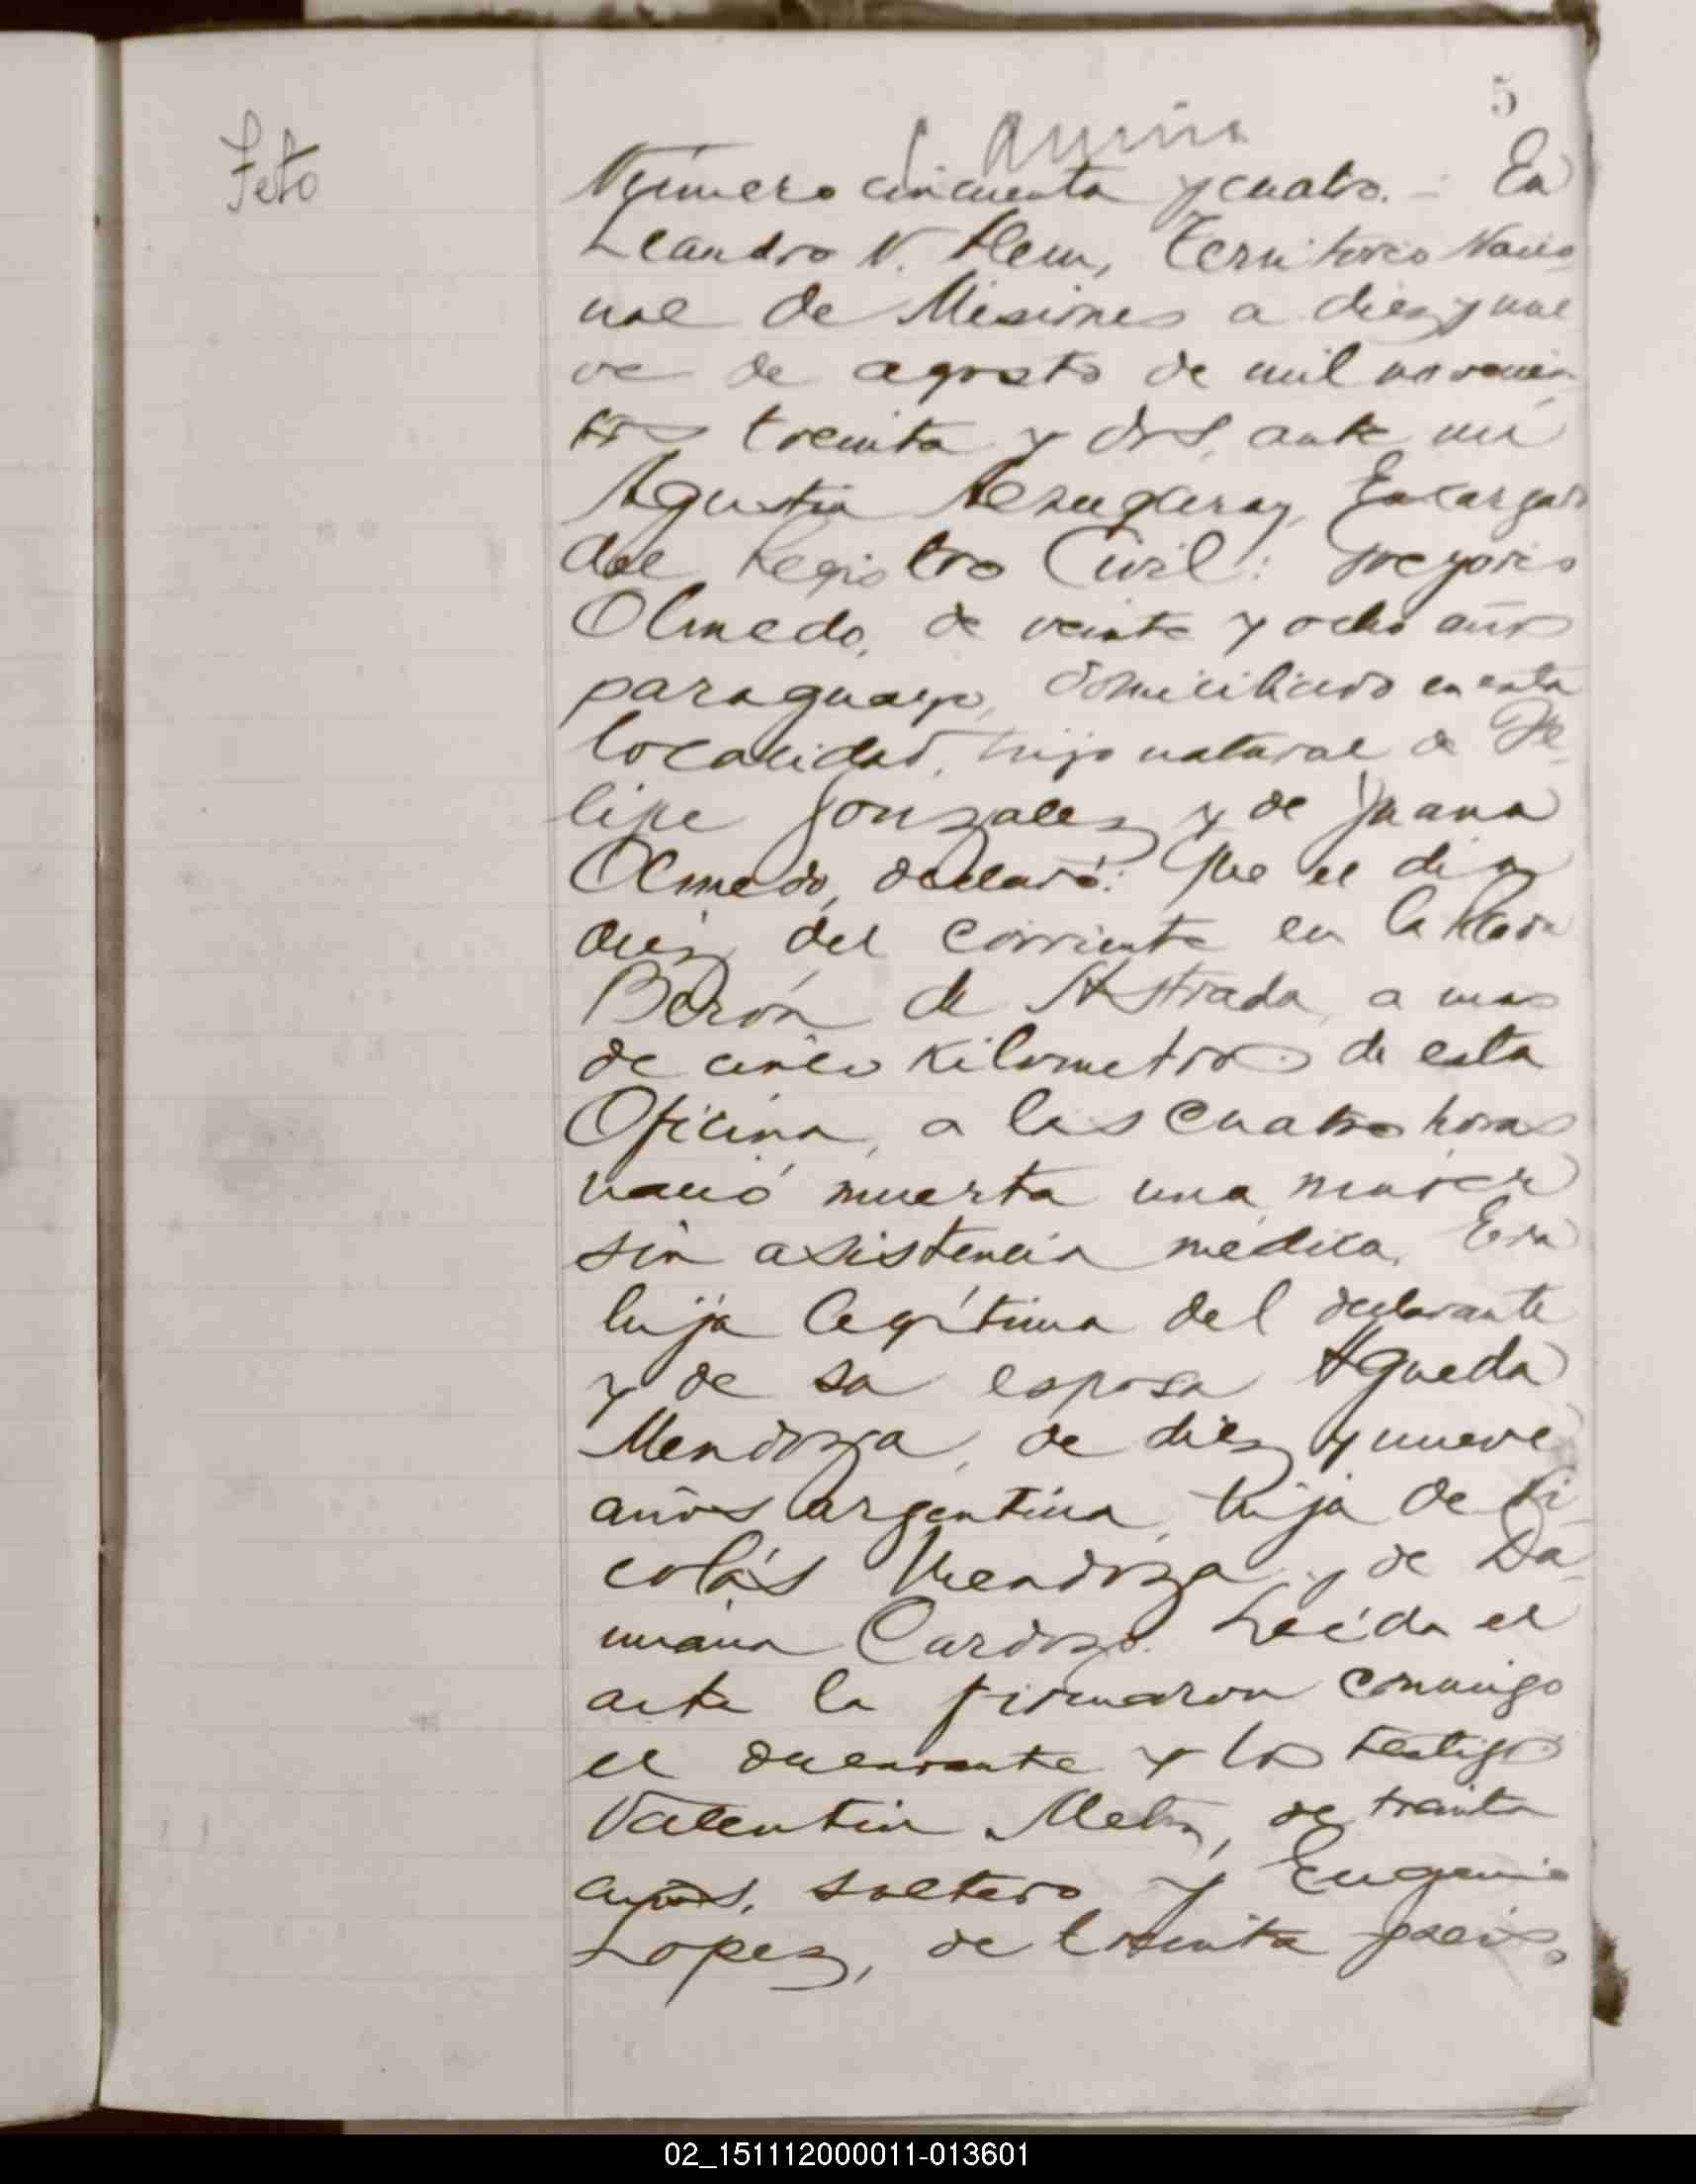 5
Feto
Número cincuenta y cuatro. - En
Leandro N. Alem, Territorio Nacio-
nal de Misiones a diez y nue
ve de agosto de mil novecien-
tos treinta y dos, ante mí
Agustín Encargado
del Registro Civil: Gregorio
Olmedo, de veinte y ocho años
paraguayo, domiciliado en esta
localidad, hijo natural de Fe-
lipe Gonzalez y de Juana
Olmedo, declaró: Que el dia
diez del corriente en la
Berón de Astrada, a mas
de cinco kilometros de esta
Oficina, a las cuatro horas
nació muerta una mujer
sin asistencia médica. Era
hija legítima del declarante
y de su esposa Agueda
Mendoza, de diez y nueve
años argentina, hija de Ni-
colás Mendoza y de Da-
miana Cardozo. Leída el
acta la firmaron conmigo
el declarante y los testigos
Valentin de treinta
años, soltero y Eugenio
Lopez, de treinta y seis,
02_151112000011-013601